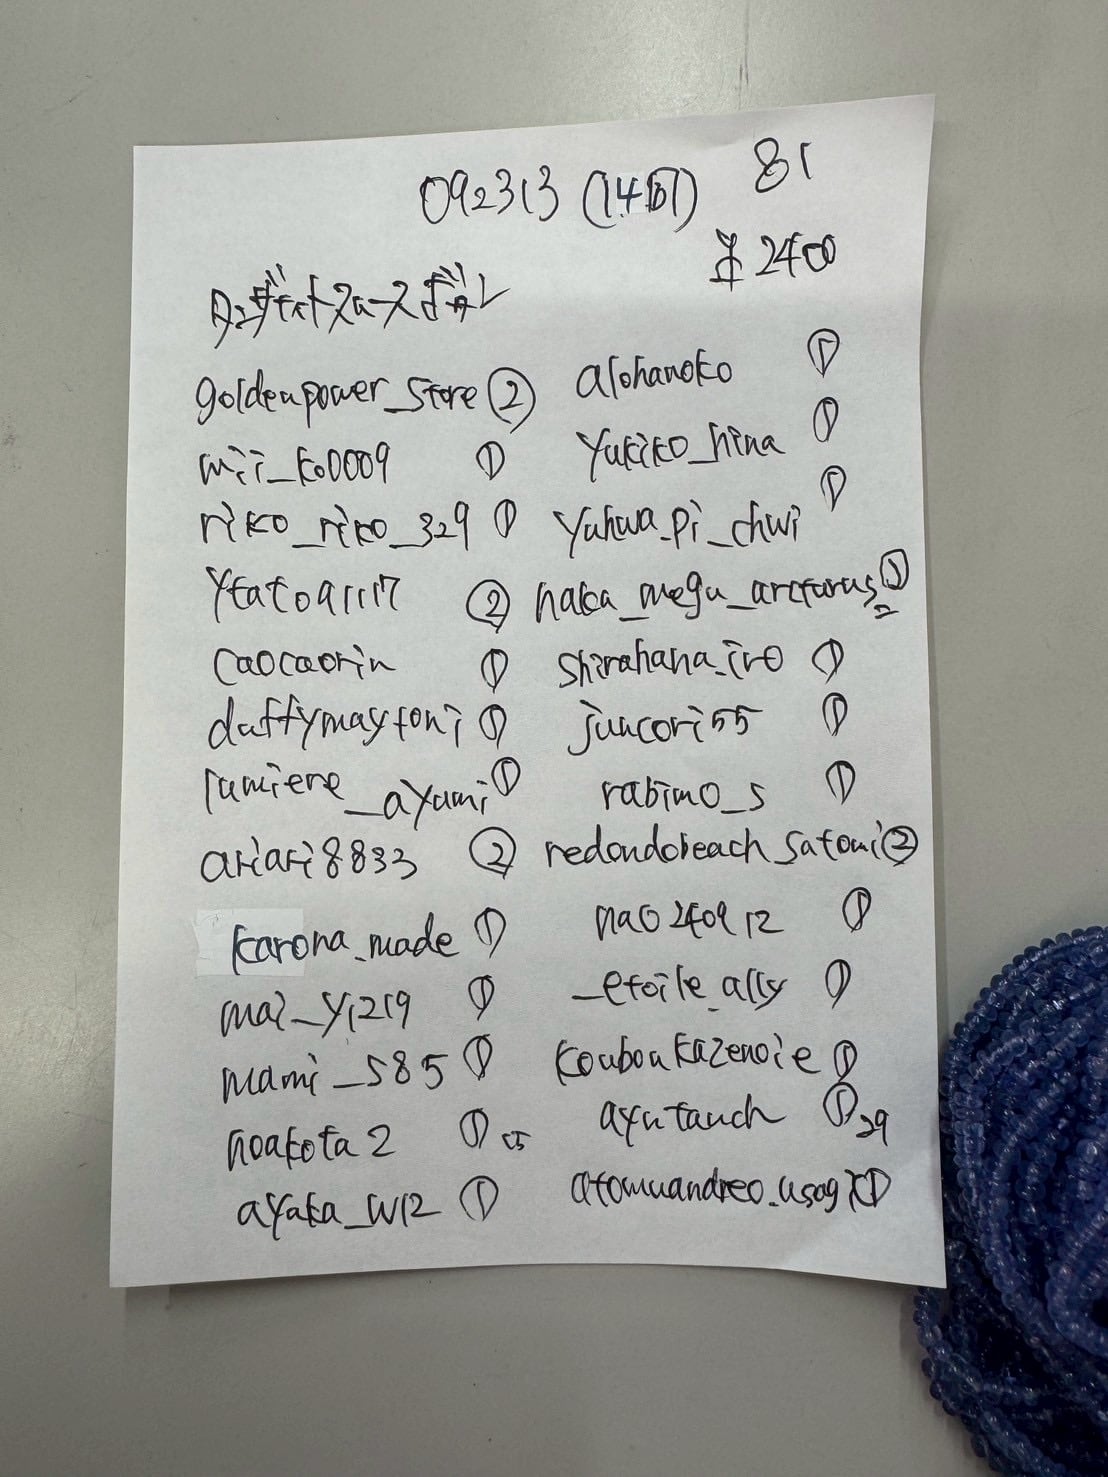 092313 (14的) 81
¥2400
タンザナイトスムースボタン
goldenpower_store ②
mii_ko0009 ①
riko_riko_329 ①
ytato91117 ②
caocaorin ①
daffymaytoni ①
lumiere_ayumi ①
ariari8833 ②
karona_made ①
mai_y1219 ①
mami_585 ①
noakota2 ① 25
ayaka_w12 ①
alohanoko ①
yukiko_hina ①
yuhwa_pi_chwi ①
naka_megu_arcturus_2 ①
shirahana_iro ①
juncori55 ①
rabimo_s ①
redondobeach_satomi ②
nao240912 ①
_etoile_ally ①
kouboukazenoie ①
ayutauch ① 29
atomuandreo_usagi ①